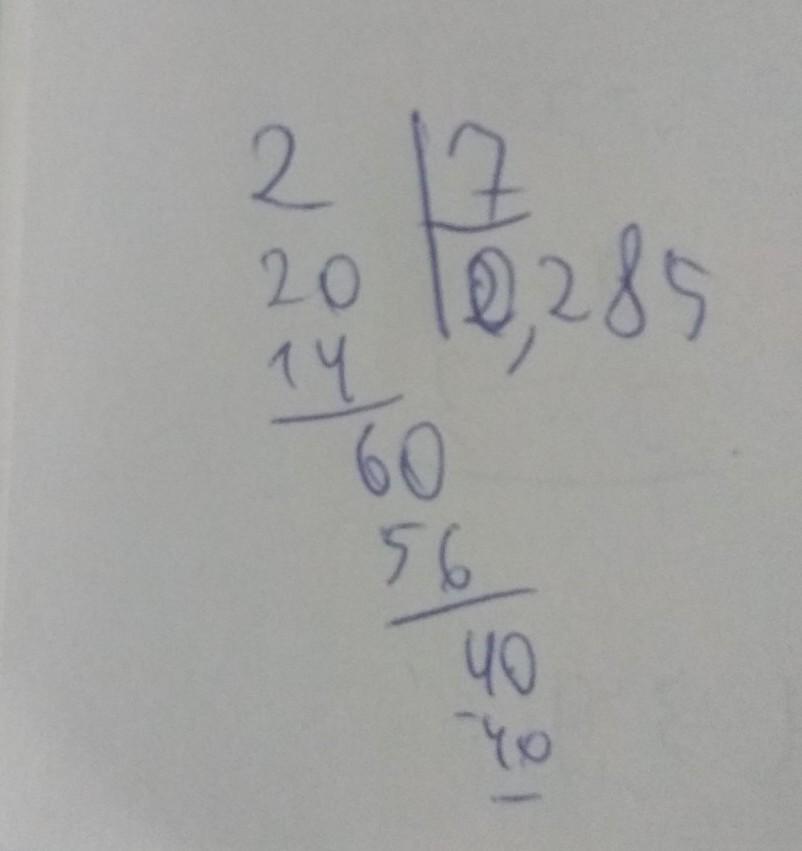 2 7
20 0,285
14
60
56
40
-40